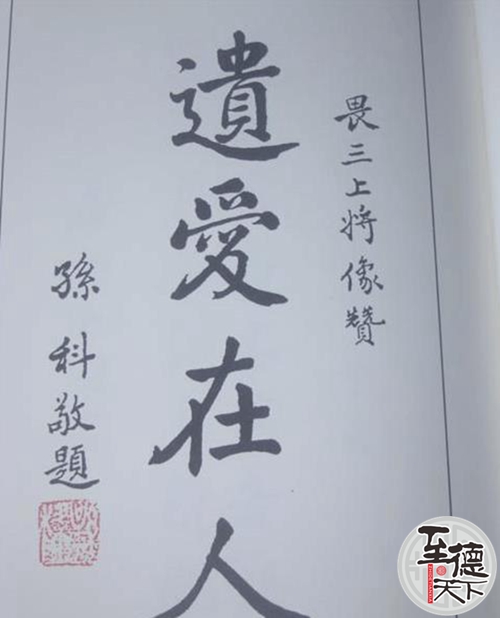 畏三上將像贊
遺愛在人
孫科敬題
至德天下